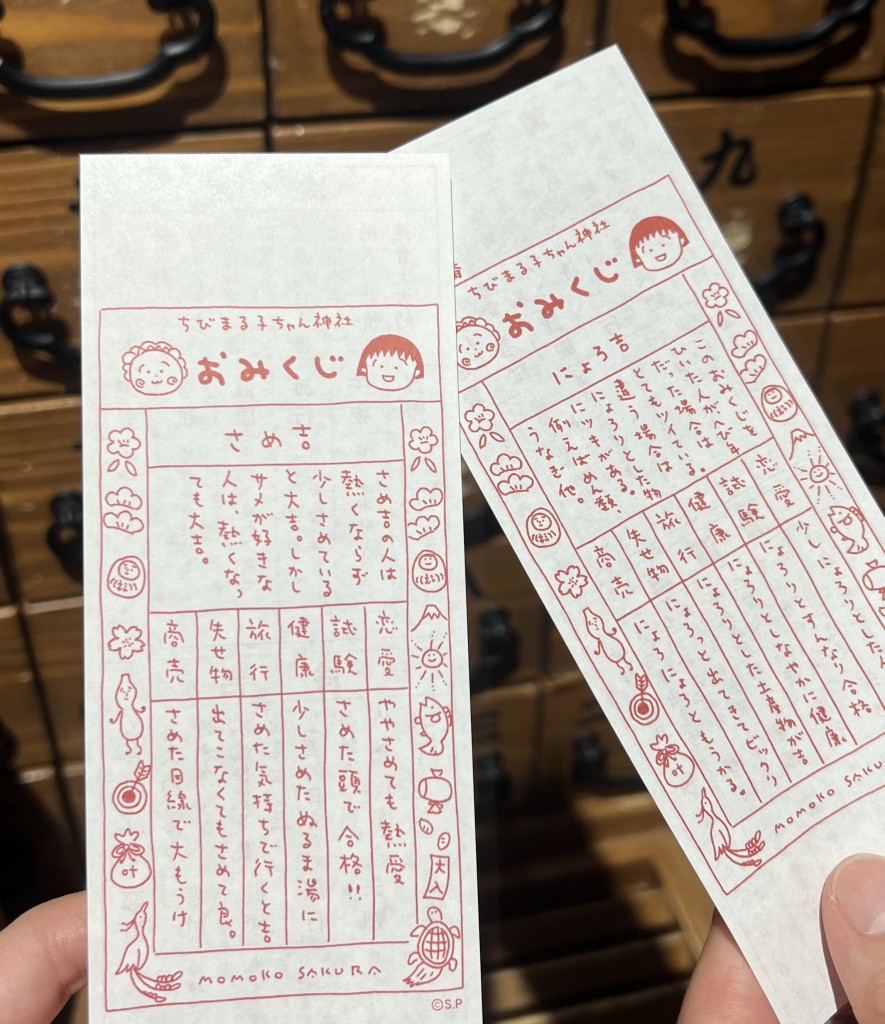 ちびまる子ちゃん神社
おみくじ
さめ吉
さめ吉の人は
熱くならず
少しさめている
と大吉。しかし
サメが好きな
人は、熱くなっ
ても大吉。
恋愛
ややさめても熱愛
試験
さめた頭で合格!!
健康
少しさめたぬるま湯に
旅行
さめた気持ちで行くと吉。
失せ物
出てこなくてもさめて良。
商売
さめた目線で大もうけ
叶
大入
MOMOKO SAKURA
©S.P
ちびまる子ちゃん神社
おみくじ
にょろ吉
このおみくじを
ひいた人がへび年
だった場合は、
とてもツイている。
違う場合は、
にょろりとした物
にツキがある。
例えばめん類、
うなぎ他。
恋愛
少しにょろりとした人
試験
にょろりとすんなり合格
健康
にょろりとしなやかに健康
旅行
にょろりとした土産物が吉
失せ物
にょろっと出てきてビックリ
商売
にょろにょろともうかる。
叶
MOMOKO SAKU
九